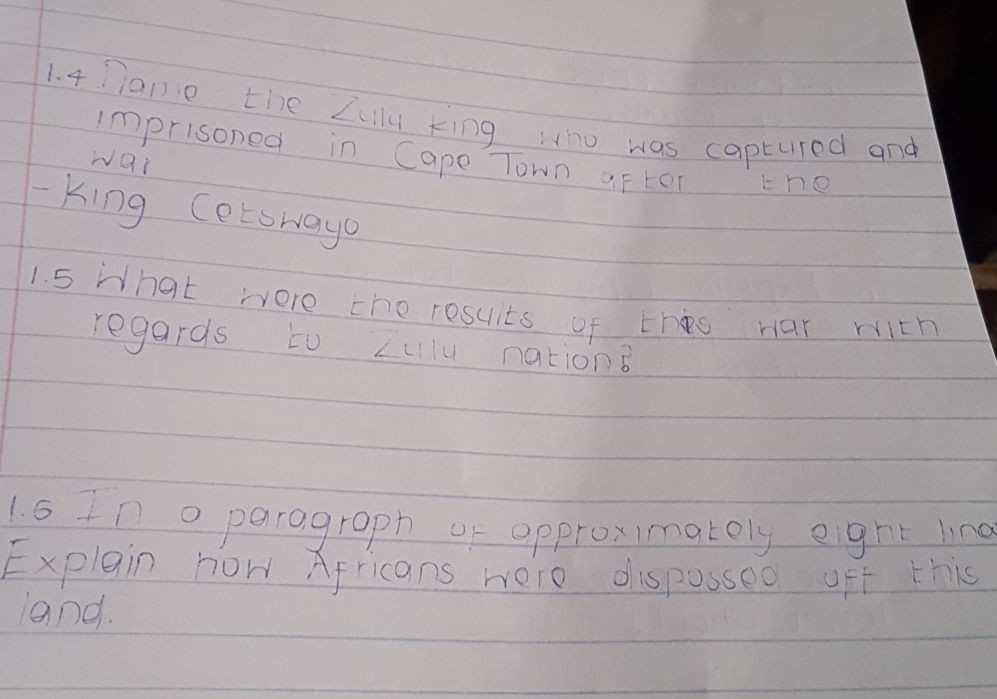 1.4 Name the Zulu king who was captured and
imprisoned in Cape Town after the
war
- King Cetswayo
1.5 What were the results of this war with
regards to Zulu nation?
1.6 In a paragraph of approximately eight line
Explain how Africans were dispossed off this
land.